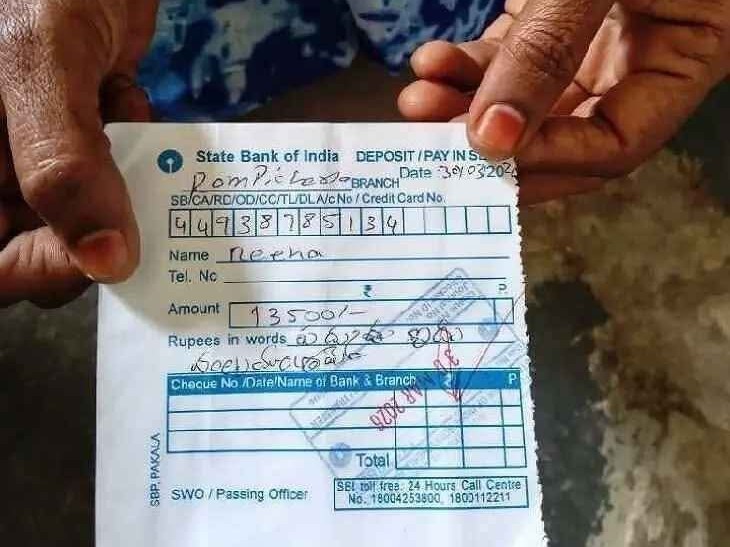 State Bank of India DEPOSIT / PAY IN
Rompicherla BRANCH Date 30/03/202
SB/CA/RD/OD/CC/TL/DLA/c No / Credit Card No.
44938785134
Name Neena
Tel. No
₹ P.
Amount 13500/-
Rupees in words పదమూడు
Cheque No./Date/Name of Bank & Branch ₹ P
30 MAR 2026
Total
SWO / Passing Officer
SBI toll free: 24 Hours Call Centre
No. 18004253800, 1800112211
SBP, PAKALA